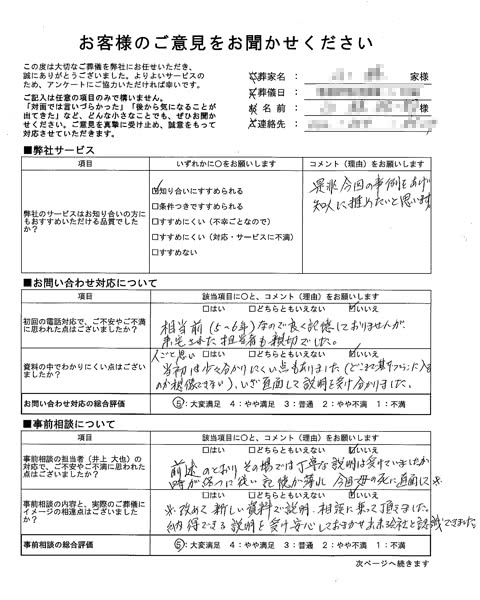 お客様のご意見をお聞かせください
この度は大切なご葬儀を弊社にお任せいただき、
誠にありがとうございました。よりよいサービスの
ため、アンケートにご協力いただければ幸いです。
ご記入は任意の項目のみで構いません。
「対面では言いづらかった」「後から気になることが
出てきた」など、どんな小さなことでも、ぜひお聞か
せください。ご意見を真摯に受け止め、誠意をもって
対応させていただきます。
葬家名： 家様
葬儀日：
名前：
連絡先：
■弊社サービス
項目 いずれかに○をお願いします コメント（理由）をお願いします
弊社のサービスはお知り合いの方に
もおすすめいただける品質でした
か？
☑知り合いにすすめられる
□条件つきですすめられる
□すすめにくい（不幸ごとなので）
□すすめにくい（対応・サービスに不満）
□すすめない
是非今回の事例をあげ
知人に推めたいと思います
■お問い合わせ対応について
項目 該当項目に○と、コメント（理由）をお願いします
初回の電話対応で、ご不安やご不満
に思われた点はございましたか？
□はい □どちらともいえない ☑いいえ
相当前（5～6年）なので良く記憶しておりませんが、
来宅された担当者も親切でした。
資料の中でわかりにくい点はござい
ましたか？
□はい □どちらともいえない ☑いいえ
人ごと思い
当初は少々分かりにくい点もありました（どこまで基本プランに入る
のか想像できない）、いざ直面して説明を受け分かりました。
お問い合わせ対応の総合評価 ⑤：大変満足 4：やや満足 3：普通 2：やや不満 1：不満
■事前相談について
項目 該当項目に○と、コメント（理由）をお願いします
事前相談の担当者（井上 大也）の
対応で、ご不安やご不満に思われた
点はございましたか？
□はい □どちらともいえない ☑いいえ
前述のとおりその場では丁寧な説明は受けていましたが
時が経つに従い記憶が薄れ 今回母の死に直面して※
事前相談の内容と、実際のご葬儀に
イメージの相違点はございました
か？
□はい □どちらともいえない ☑いいえ
※改めて新しい資料で説明、相談に乗って頂きました。
納得できる説明を受け安心しておまかせ出来る会社と認識できました
事前相談の総合評価 ⑤：大変満足 4：やや満足 3：普通 2：やや不満 1：不満
次ページへ続きます